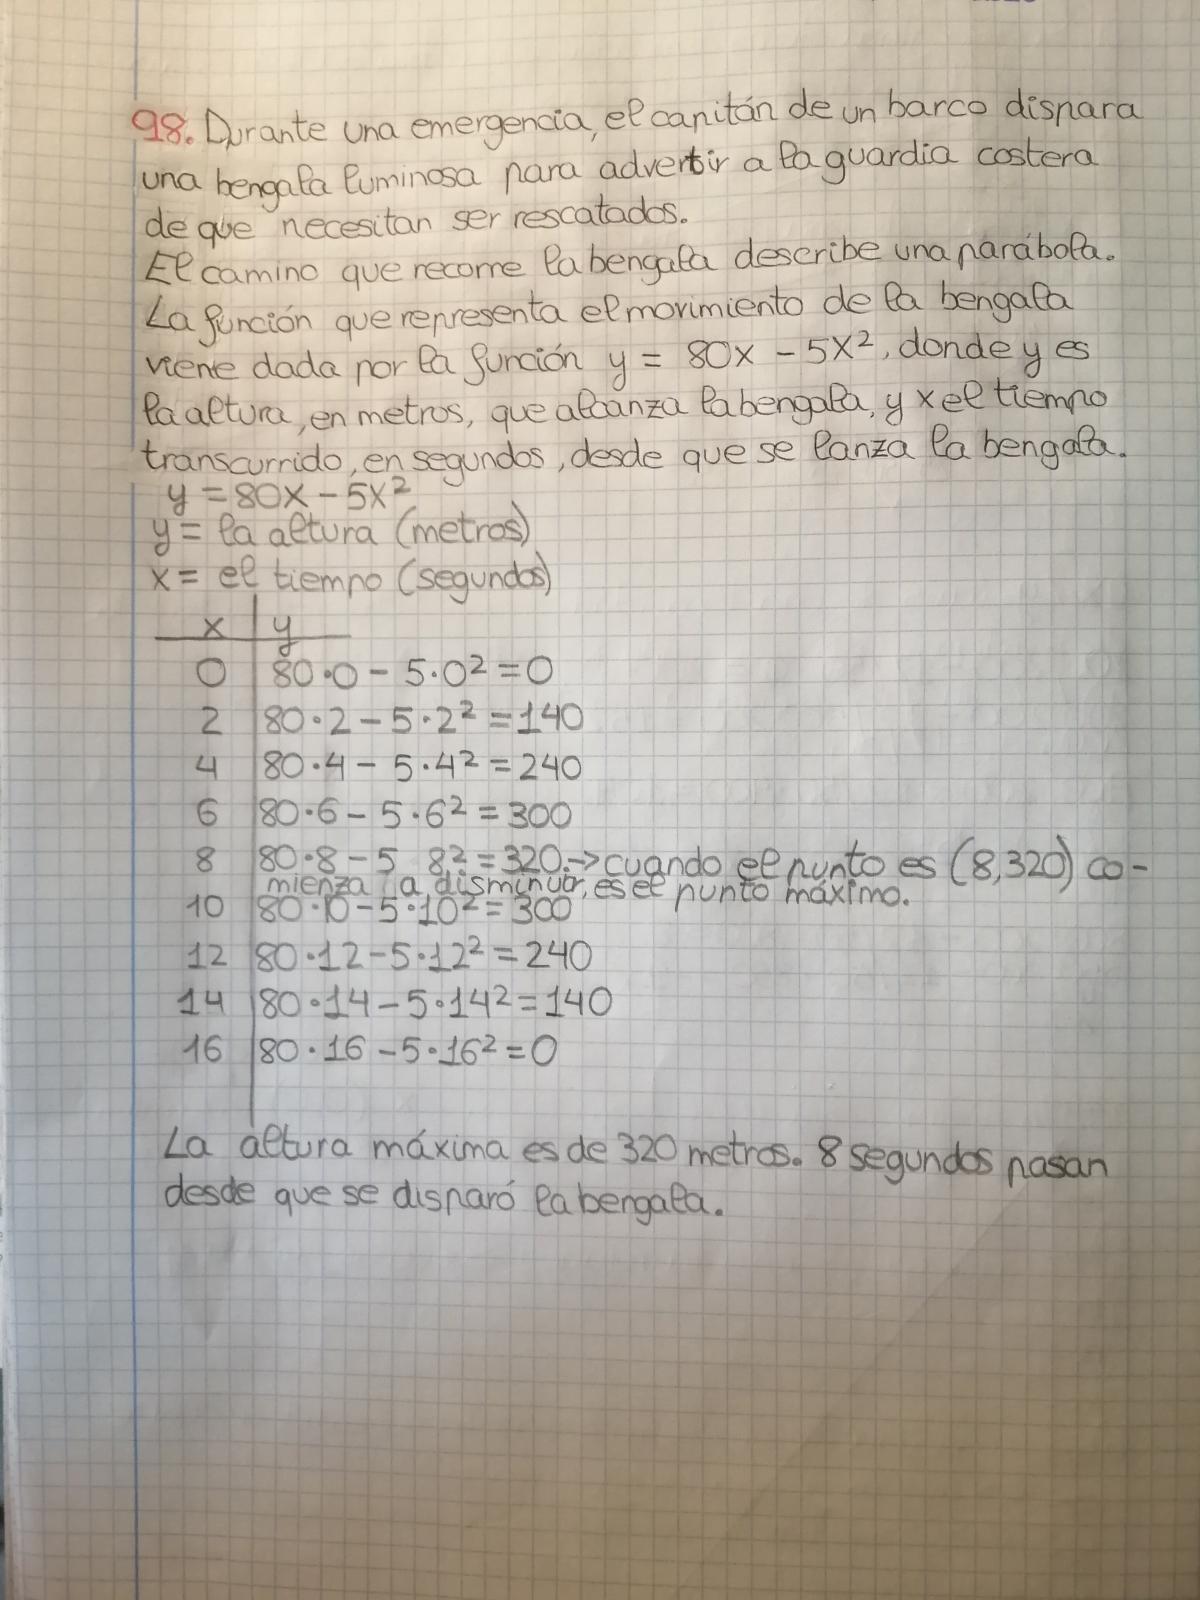 98. Durante una emergencia, el capitán de un barco dispara
una bengala luminosa para advertir a la guardia costera
de que necesitan ser rescatados.
El camino que recorre la bengala describe una parábola.
La función que representa el movimiento de la bengala
viene dada por la función y = 80x - 5x², donde y es
la altura, en metros, que alcanza la bengala, y x el tiempo
transcurrido, en segundos, desde que se lanza la bengala.
y = 80x - 5x²
y = la altura (metros)
x = el tiempo (segundos)
x | y
0 | 80·0 - 5·0² = 0
2 | 80·2 - 5·2² = 140
4 | 80·4 - 5·4² = 240
6 | 80·6 - 5·6² = 300
8 | 80·8 - 5 8² = 320.-> cuando el punto es (8,320) co-
mienza a disminuir, es el punto máximo.
10 | 80·10 - 5·10² = 300
12 | 80·12 - 5·12² = 240
14 | 80·14 - 5·14² = 140
16 | 80·16 - 5·16² = 0
La altura máxima es de 320 metros. 8 segundos pasan
desde que se disparó la bengala.